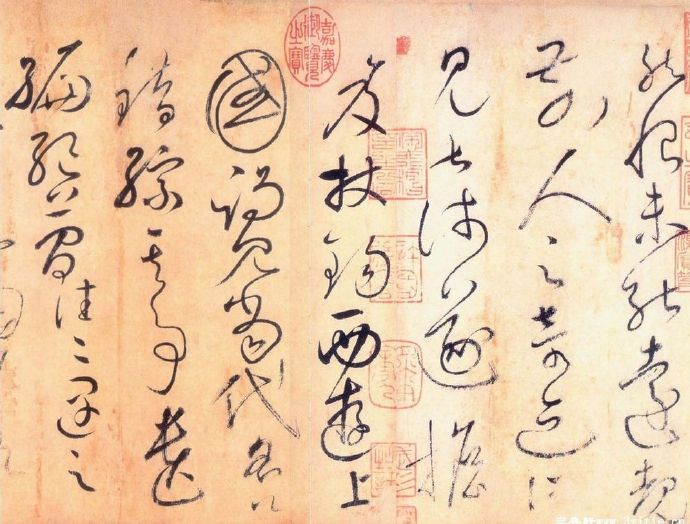 然恨未能遠覩
前人之奇迹所
見甚淺遂擔
笈杖錫西遊上
國謁見當代名公
錯綜其事遺
編絕簡往往遇之
嘉慶御覽之寶